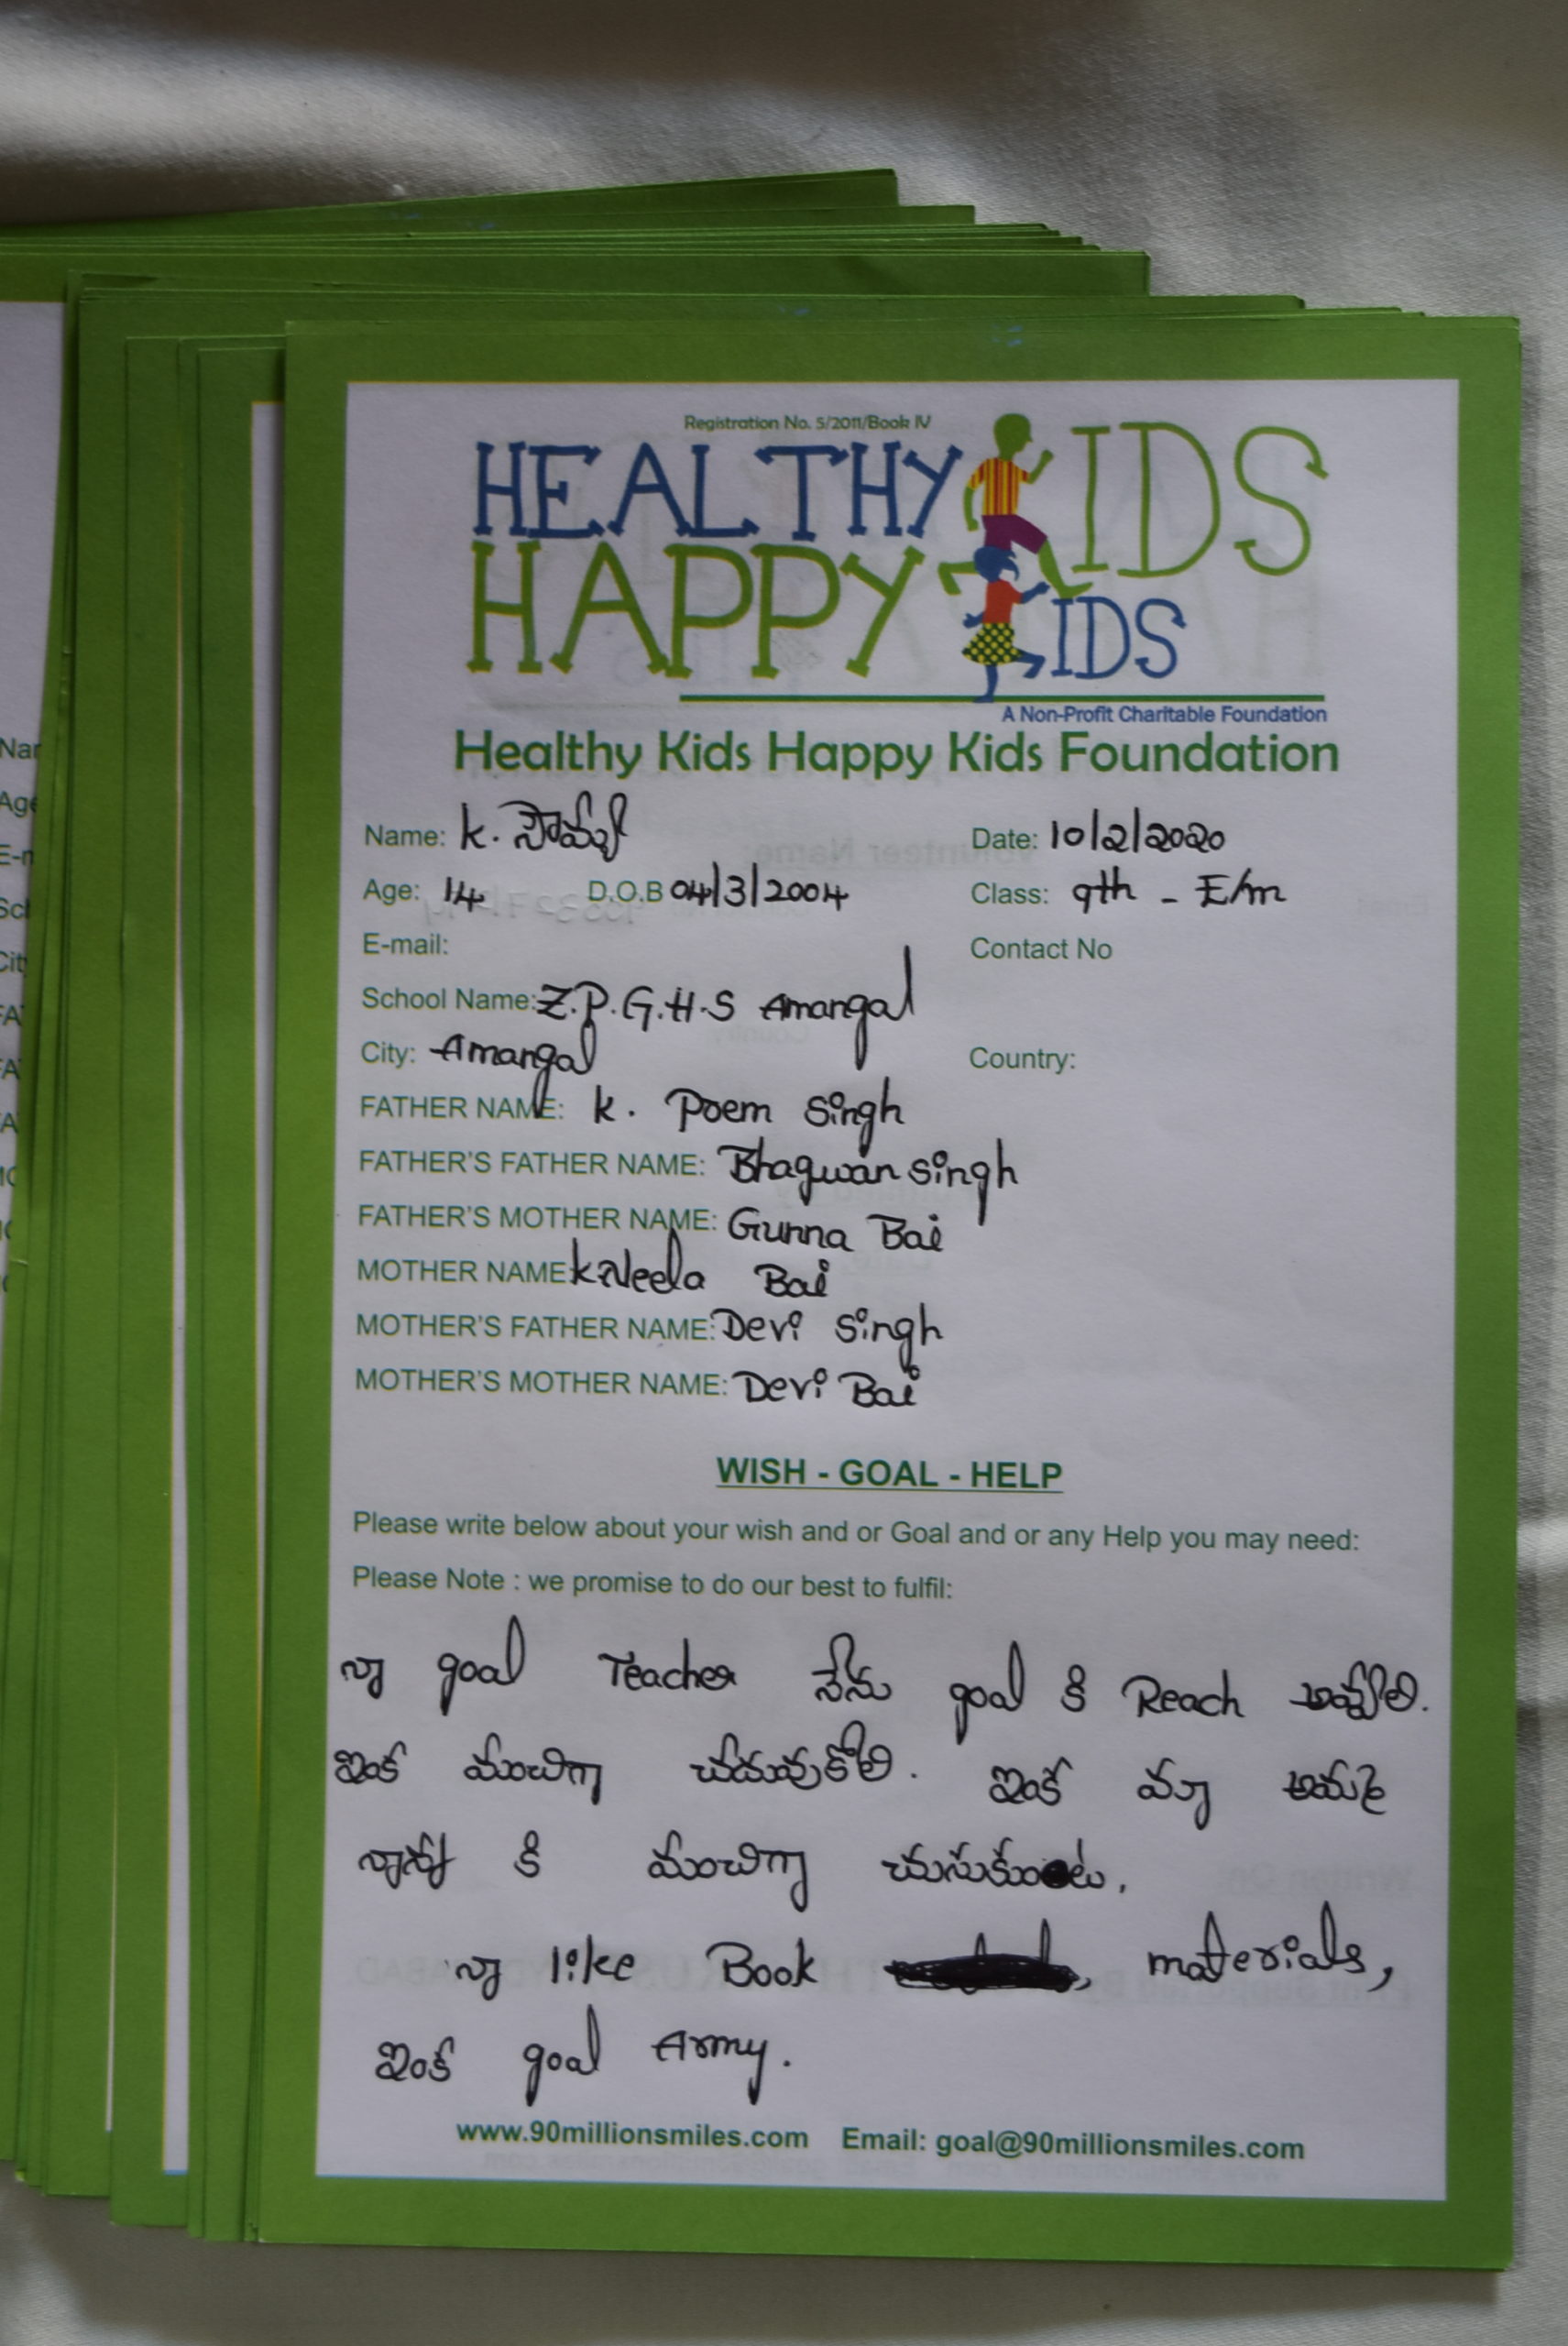 Registration No. 5/2011/Book IV
HEALTHY KIDS
HAPPY KIDS
A Non-Profit Charitable Foundation
Healthy Kids Happy Kids Foundation
Name: K. సౌమ్య Date: 10/2/2020
Age: 14 D.O.B 04/3/2004 Class: 9th - E/m
E-mail: Contact No
School Name: Z.P.G.H.S Amangal
City: Amangal Country:
FATHER NAME: K. Poem Singh
FATHER'S FATHER NAME: Bhagwan Singh
FATHER'S MOTHER NAME: Gunna Bai
MOTHER NAME K.Neela Bai
MOTHER'S FATHER NAME: Devi Singh
MOTHER'S MOTHER NAME: Devi Bai
WISH - GOAL - HELP
Please write below about your wish and or Goal and or any Help you may need:
Please Note : we promise to do our best to fulfil:
నా goal Teacher నేను goal కి Reach అవ్వాలి.
ఇంక మంచిగా చదువుకోలి. ఇంక మా అమ్మ
నాన్న కి మంచిగా చుసుకుంట.
నా like Book materials,
ఇంక goal Army.
www.90millionsmiles.com Email: goal@90millionsmiles.com